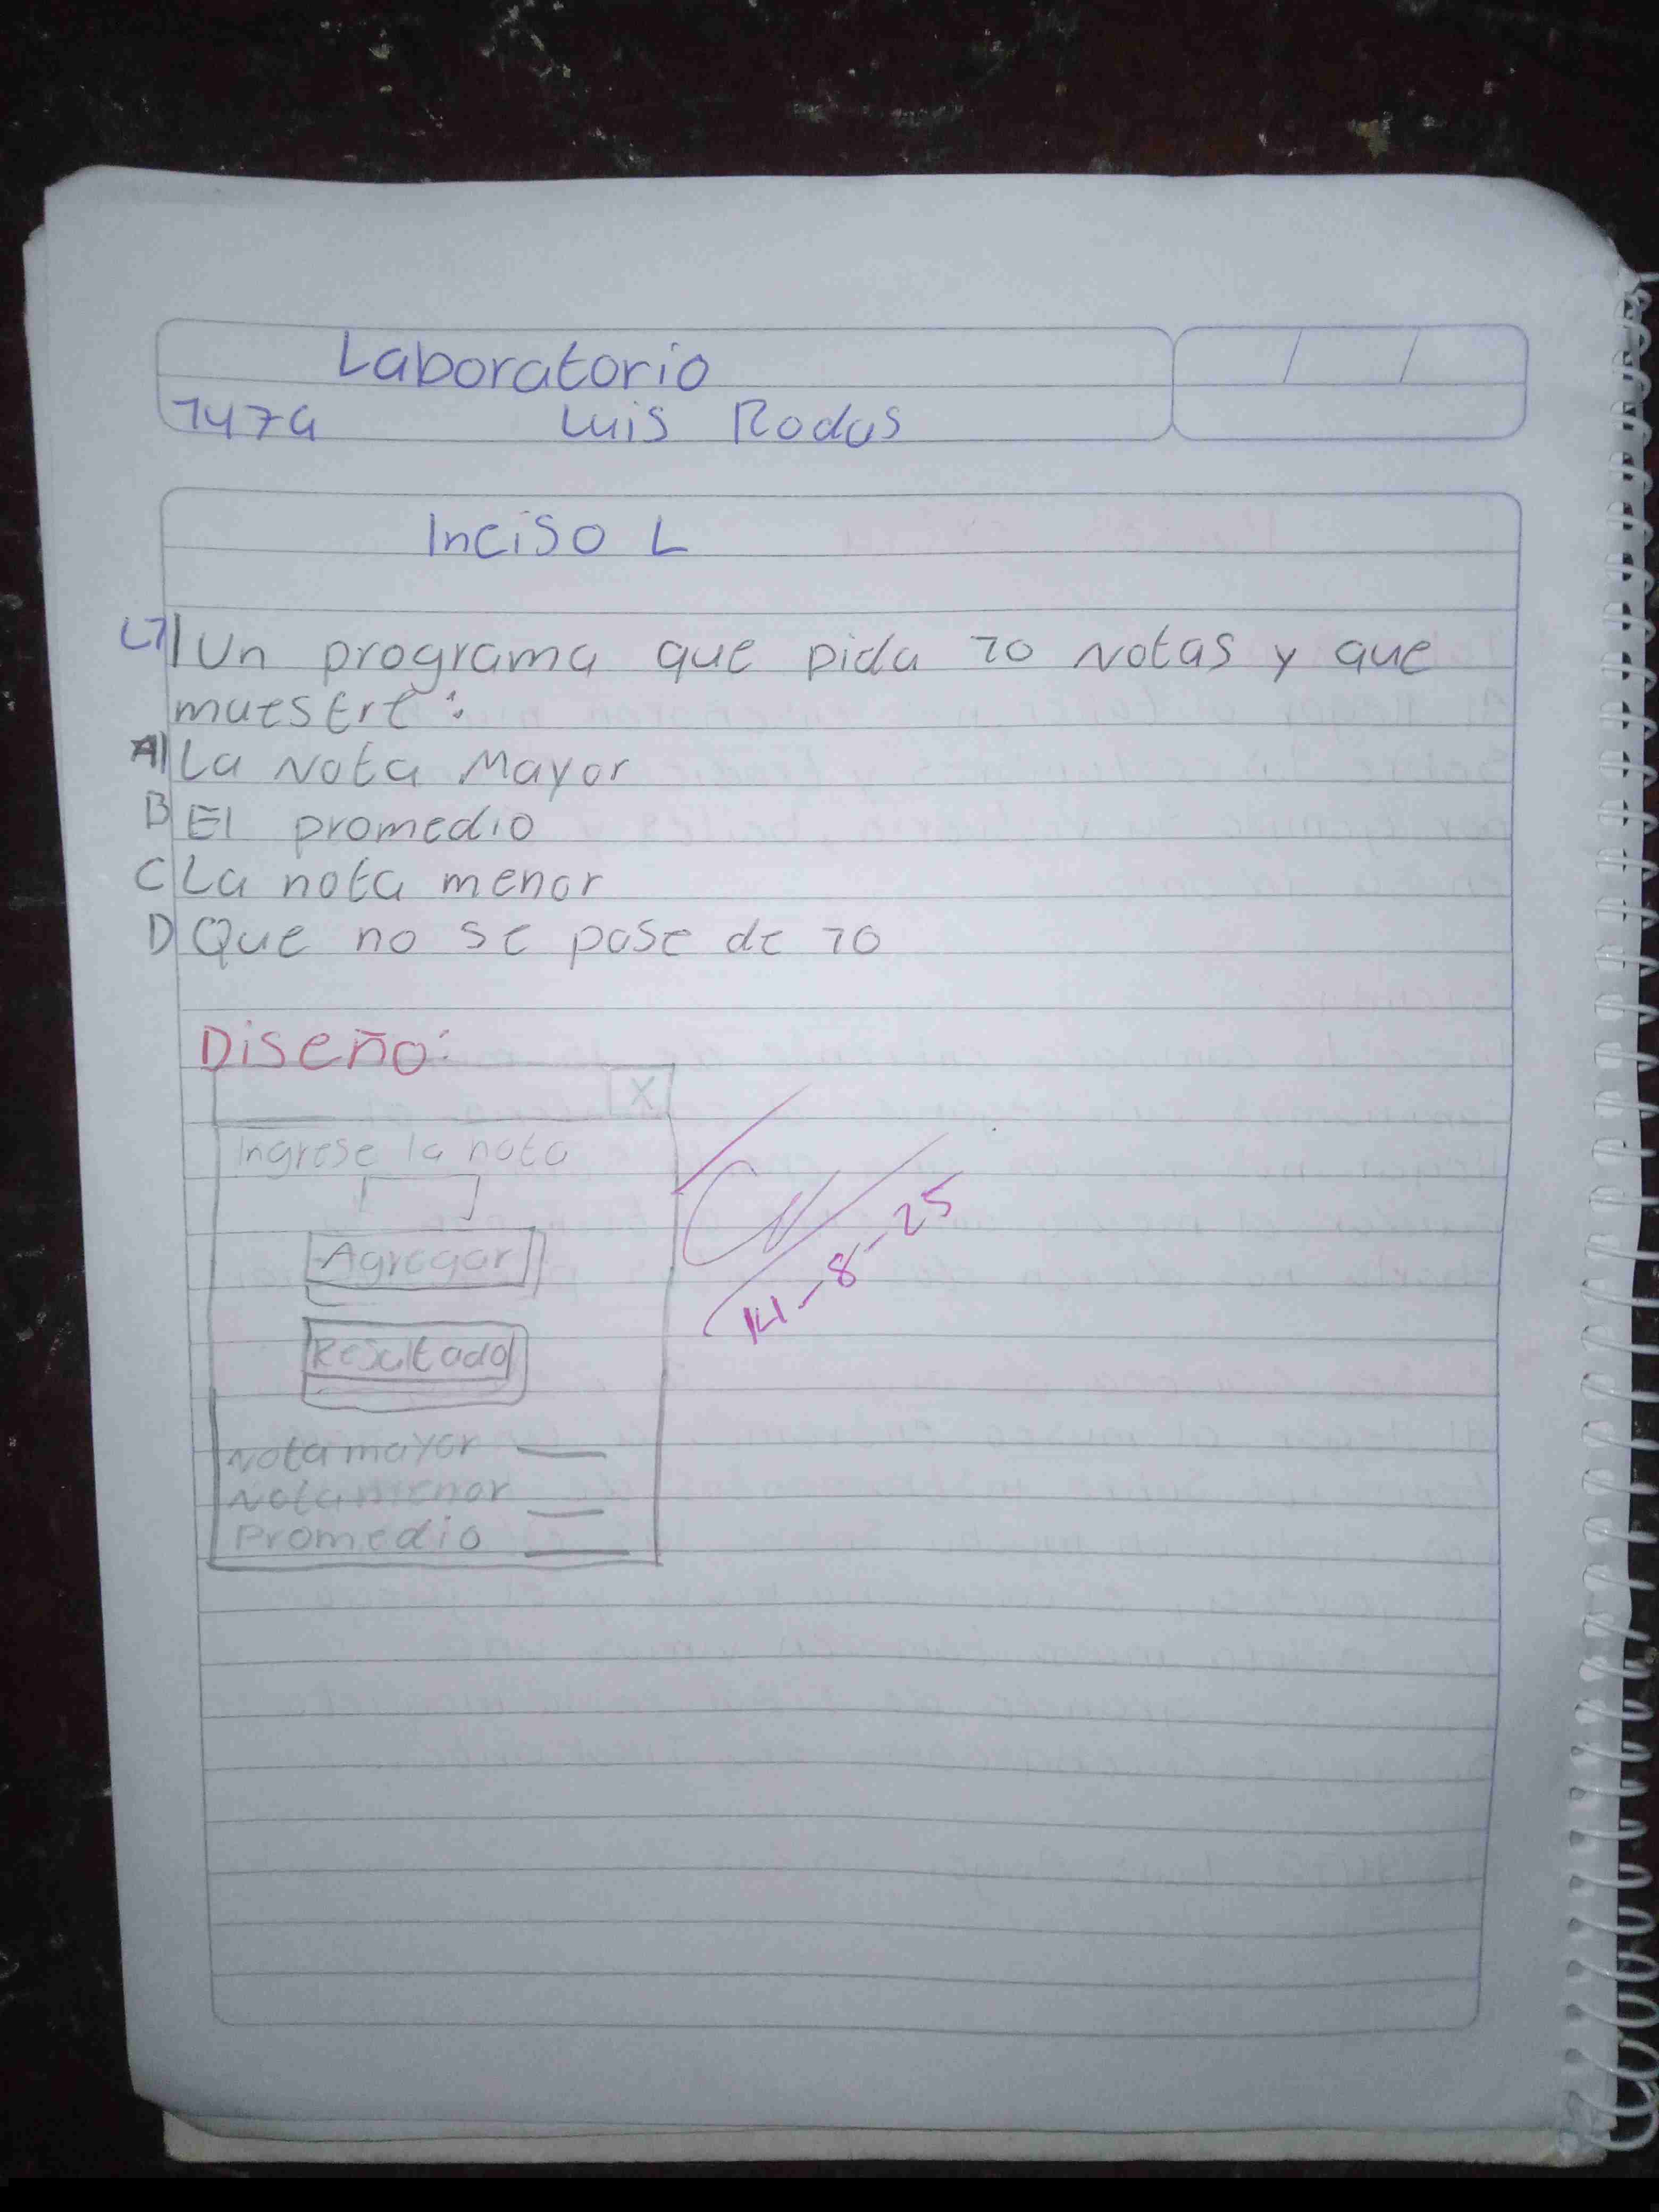 Laboratorio
1474 Luis Rodas
Inciso L
L1) Un programa que pida 10 Notas y que
muestre:
A) La Nota Mayor
B El promedio
C La nota menor
D Que no se pase de 10
Diseño:
X
Ingrese la nota
Agregar
Resultado
Nota mayor
Nota menor
Promedio
14-8-25